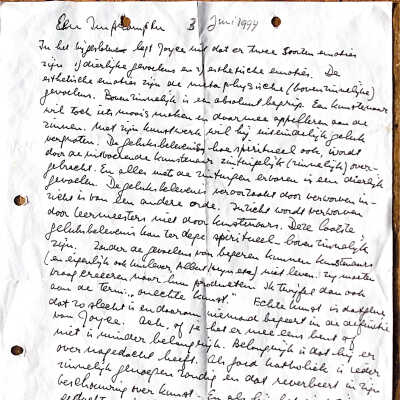 3 Juni 1994
In het bijschrift legt Joyce uit dat er twee soorten emoties
zijn: 1) dierlijke gevoelens en 2) esthetische emoties. De
esthetische emoties zijn de metaphysische (bovenzinnelijke)
gevoelens. Bovenzinnelijk is een absoluut begrip. Een kunstenaar
wil toch iets moois maken en daarmee appelleren aan de
zinnen. Met zijn kunstwerk wil hij uiteindelijk geluk
vergroten. De geluksbelevenis, hoe spiritueel ook, wordt
door de uitvoerende kunstenaar zintuigelijk (zinnelijk) over-
gebracht. En alles met de zintuigen ervaren is een dierlijk
gevoelen. De geluksbelevenis veroorzaakt door verworven in-
zicht is van een andere orde. Inzicht wordt verworven
door leermeesters niet door kunstenaars. Deze laatste
geluksbelevenis kan ter dege spiritueel - bovenzinnelijk
zijn. Zonder de gevoelens van begeren kunnen kunstenaars
(en eigenlijk ook hun lever) niet leven. Zij moeten
vraag creeeren naar hun producten. Ik twijfel dan ook
aan de term "onechte kunst". Echte kunst is datgene
dat zo slecht is en daarom niemand begeert in de definitie
van Joyce. Ach, of je het er mee eens bent of
niet is minder belangrijk. Belangrijk is dat hij er
over nagedacht heeft. Als goed katholiek is ieder
zinnelijk genoegen zondig en dat reverbeert in zijn
beschouwing over kunst. En als hij